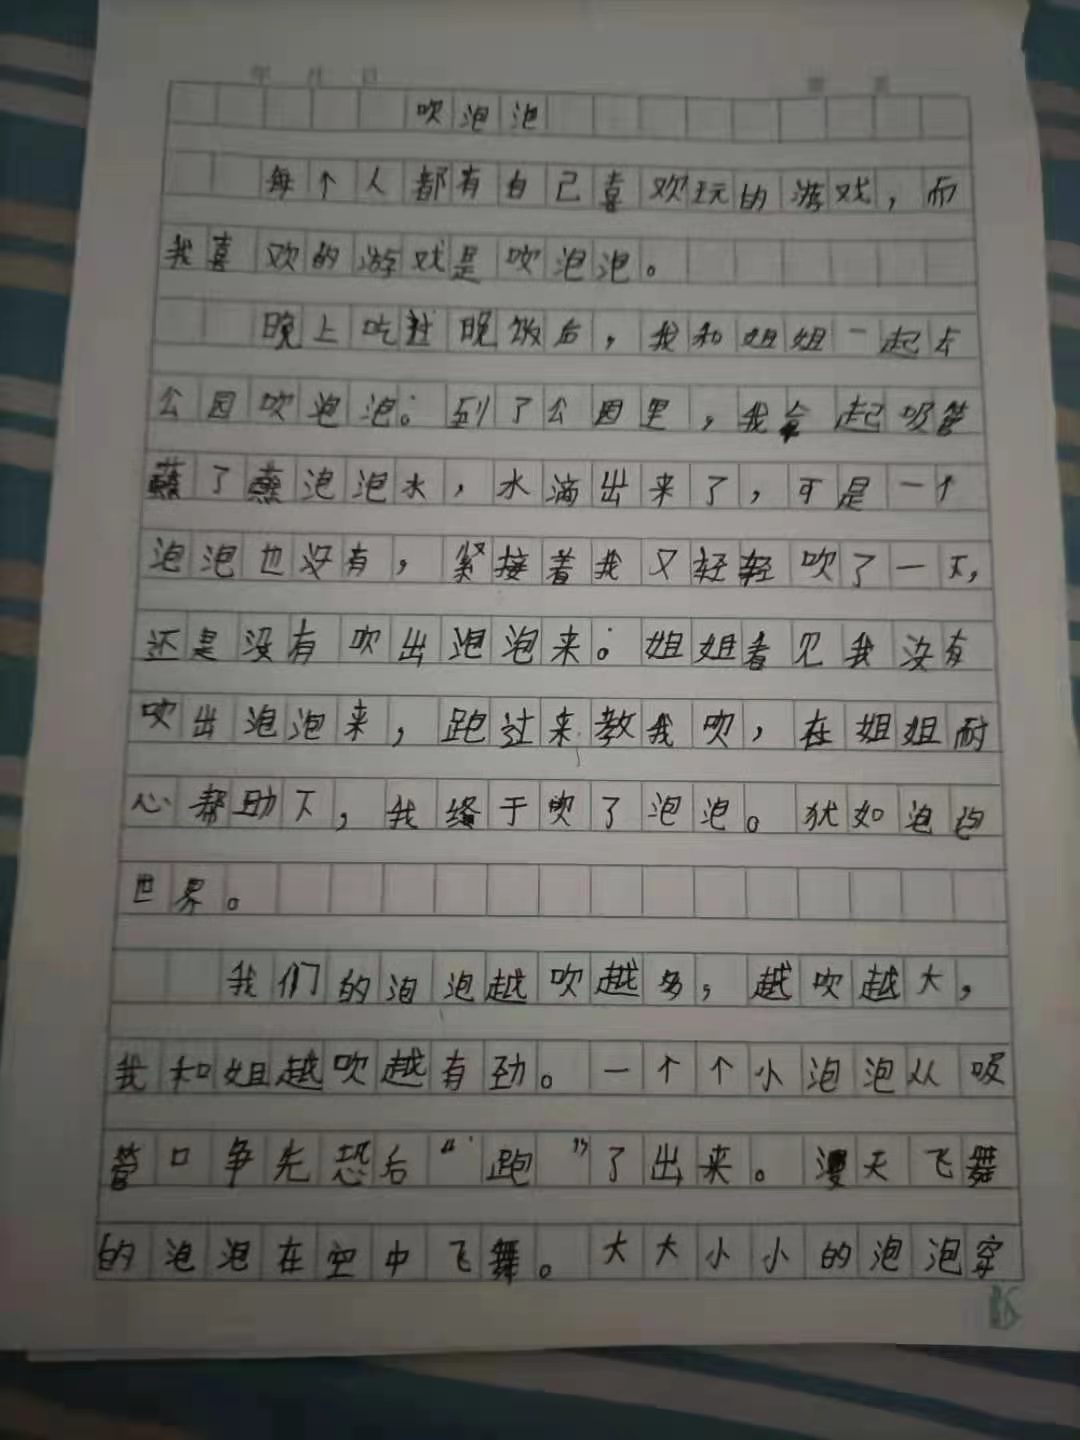 吹泡泡
每个人都有自己喜欢玩的游戏，而
我喜欢的游戏是吹泡泡。
晚上吃过晚饭后，我和姐姐一起去
公园吹泡泡。到了公园里，我拿起吸管
蘸了蘸泡泡水，水滴出来了，可是一个
泡泡也没有，紧接着我又轻轻吹了一下，
还是没有吹出泡泡来。姐姐看见我没有
吹出泡泡来，跑过来教我吹，在姐姐耐
心帮助下，我终于吹了泡泡。犹如泡泡
世界。
我们的泡泡越吹越多，越吹越大，
我和姐越吹越有劲。一个个小泡泡从吸
管口争先恐后“跑”了出来。漫天飞舞
的泡泡在空中飞舞。大大小小的泡泡穿